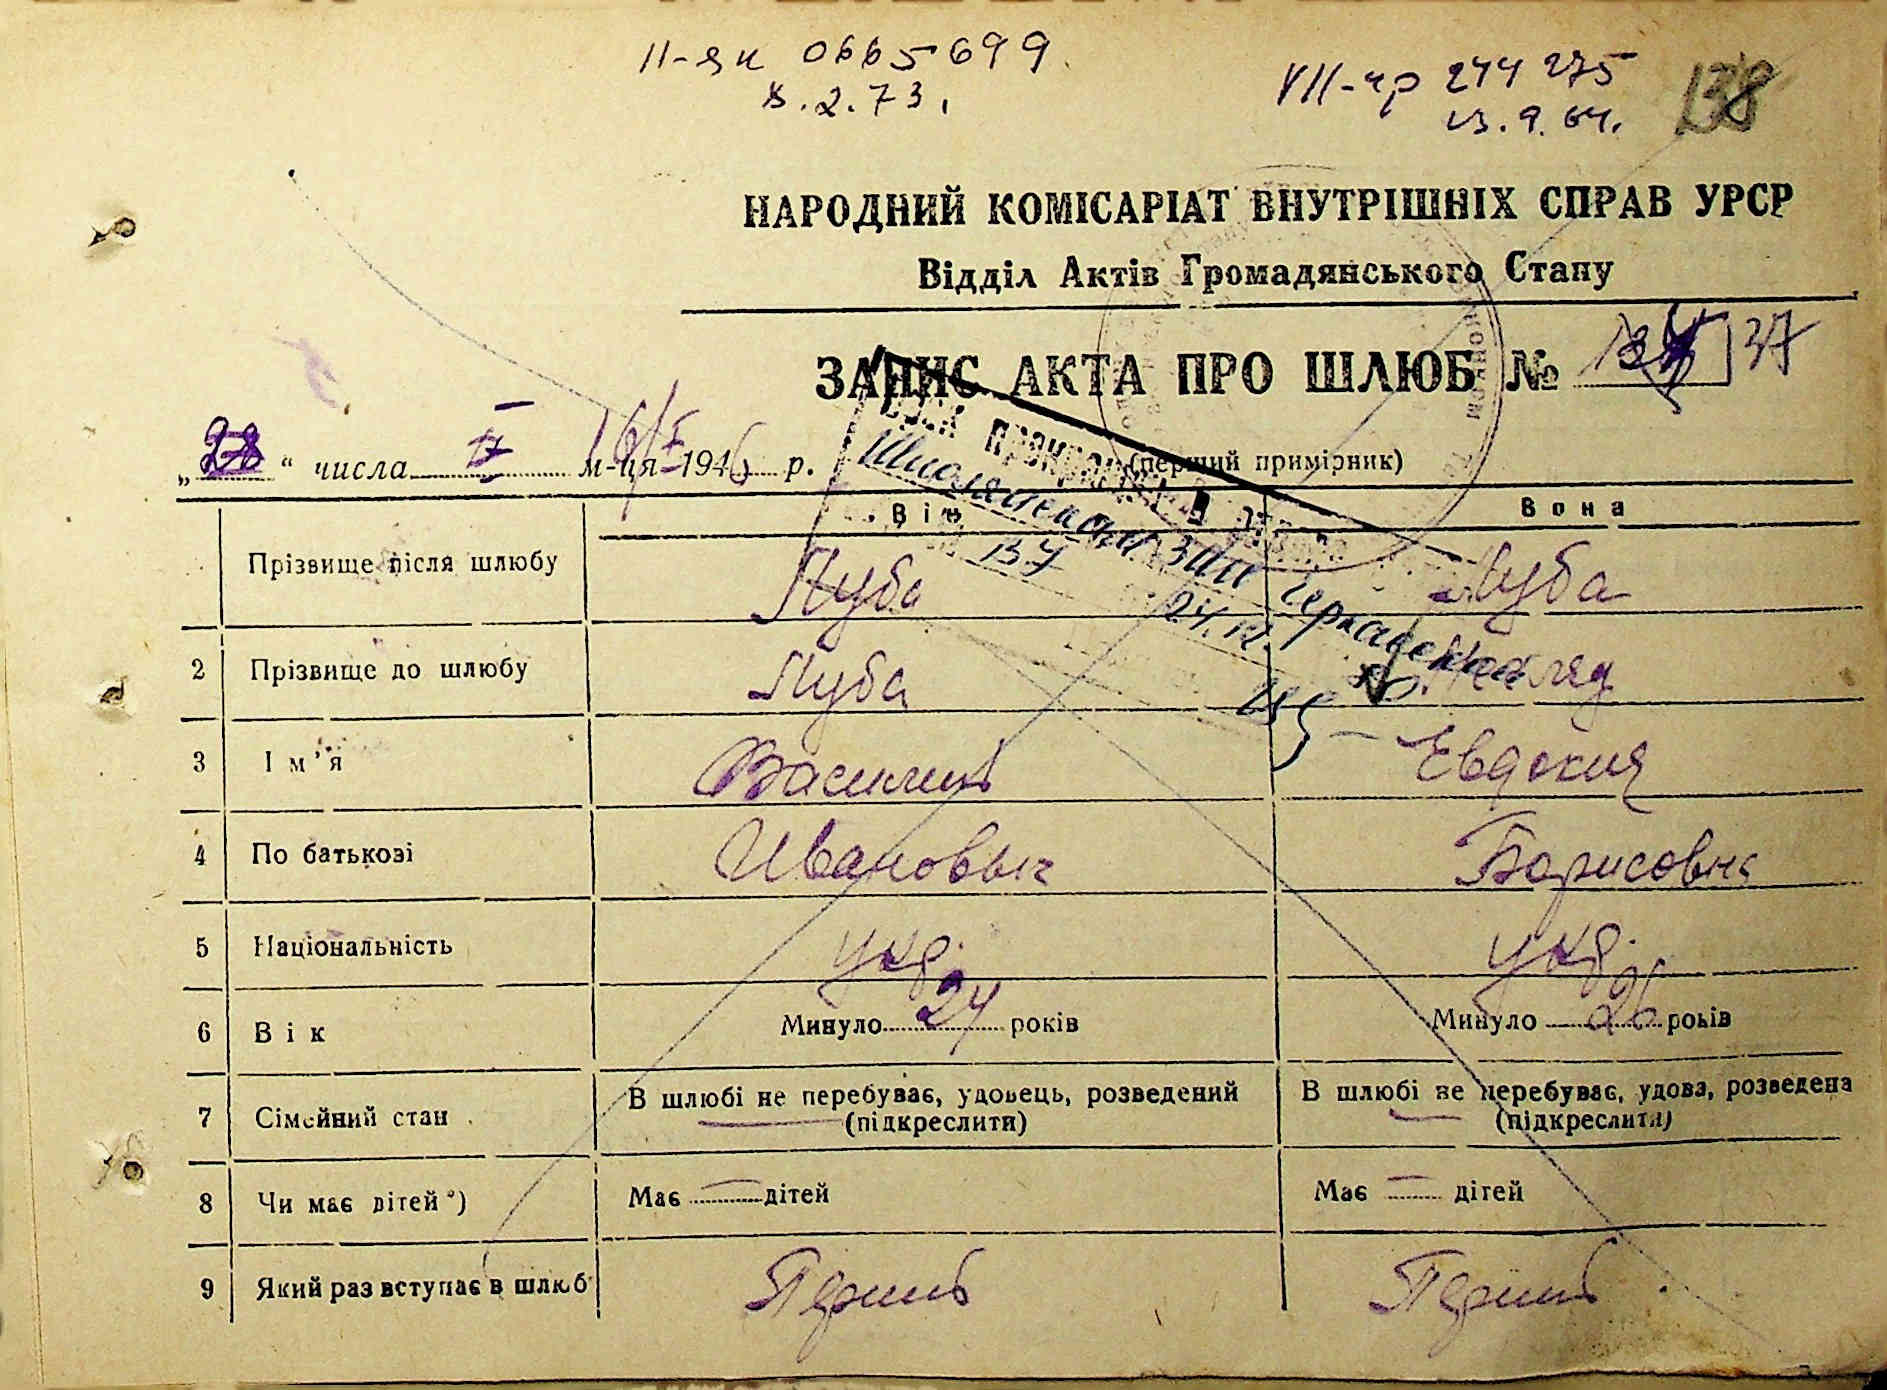 II-як 0665699
8.2.73.
VII-чр 244 275
13.9.64.
138
НАРОДНИЙ КОМІСАРІАТ ВНУТРІШНІХ СПРАВ УРСР
Відділ Актів Громадянського Стану
ЗАПИС АКТА ПРО ШЛЮБ № 37
„28“ числа м-ця 1946 р.
(перший примірник)
Він Вона
Прізвище після шлюбу Куба Куба
2 Прізвище до шлюбу Куба
3 Ім’я Василий Евдокия
4 По батькові Иванович Борисовна
5 Національність укр. укр.
6 Вік Минуло 24 років Минуло 26 років
7 Сімейний стан В шлюбі не перебуває, удовець, розведений (підкреслити) В шлюбі не перебуває, удова, розведена (підкреслити)
8 Чи має дітей*) Має — дітей Має — дітей
9 Який раз вступає в шлюб Первий Первий